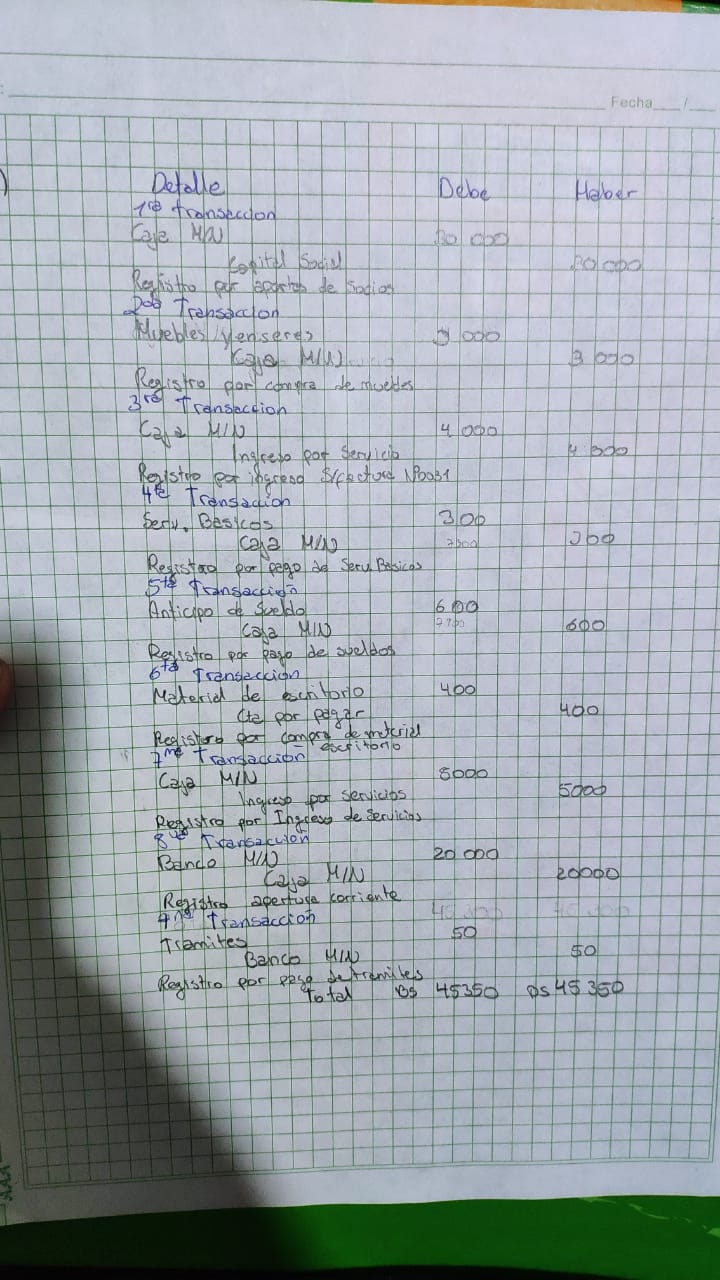 Fecha___/___
Detalle Debe Haber
1ra transaccion
Caja M/N
Capital Social
Registro por aportes de Socios
2da Transaccion
Muebles y enseres 3 000
Caja M/N 3 000
Registro por compra de muebles
3ra Transaccion
Caja M/N 4 000
Ingreso por Servicio 4 000
Registro por ingreso S/factura Nº0031
4ta Transaccion
Serv. Basicos 300
Caja M/N 300
Registro por pago de Serv. Basicos
5ta Transacción
Anticipo de Sueldo 600
Caja M/N 600
Registro por pago de sueldos
6ta Transaccion
Material de escritorio 400
Cta por pagar 400
Registro por compra de material
escritorio
7ma Transacción
Caja M/N 5000
Ingreso por servicios 5000
Registro por Ingreso de Servicios
8va Transacción
Banco M/N 20 000
Caja M/N 20000
Registro apertura corriente
Transaccion
Tramites 50
Banco M/N 50
Registro por pago de tramites
Total Bs 45350 Bs 45 350